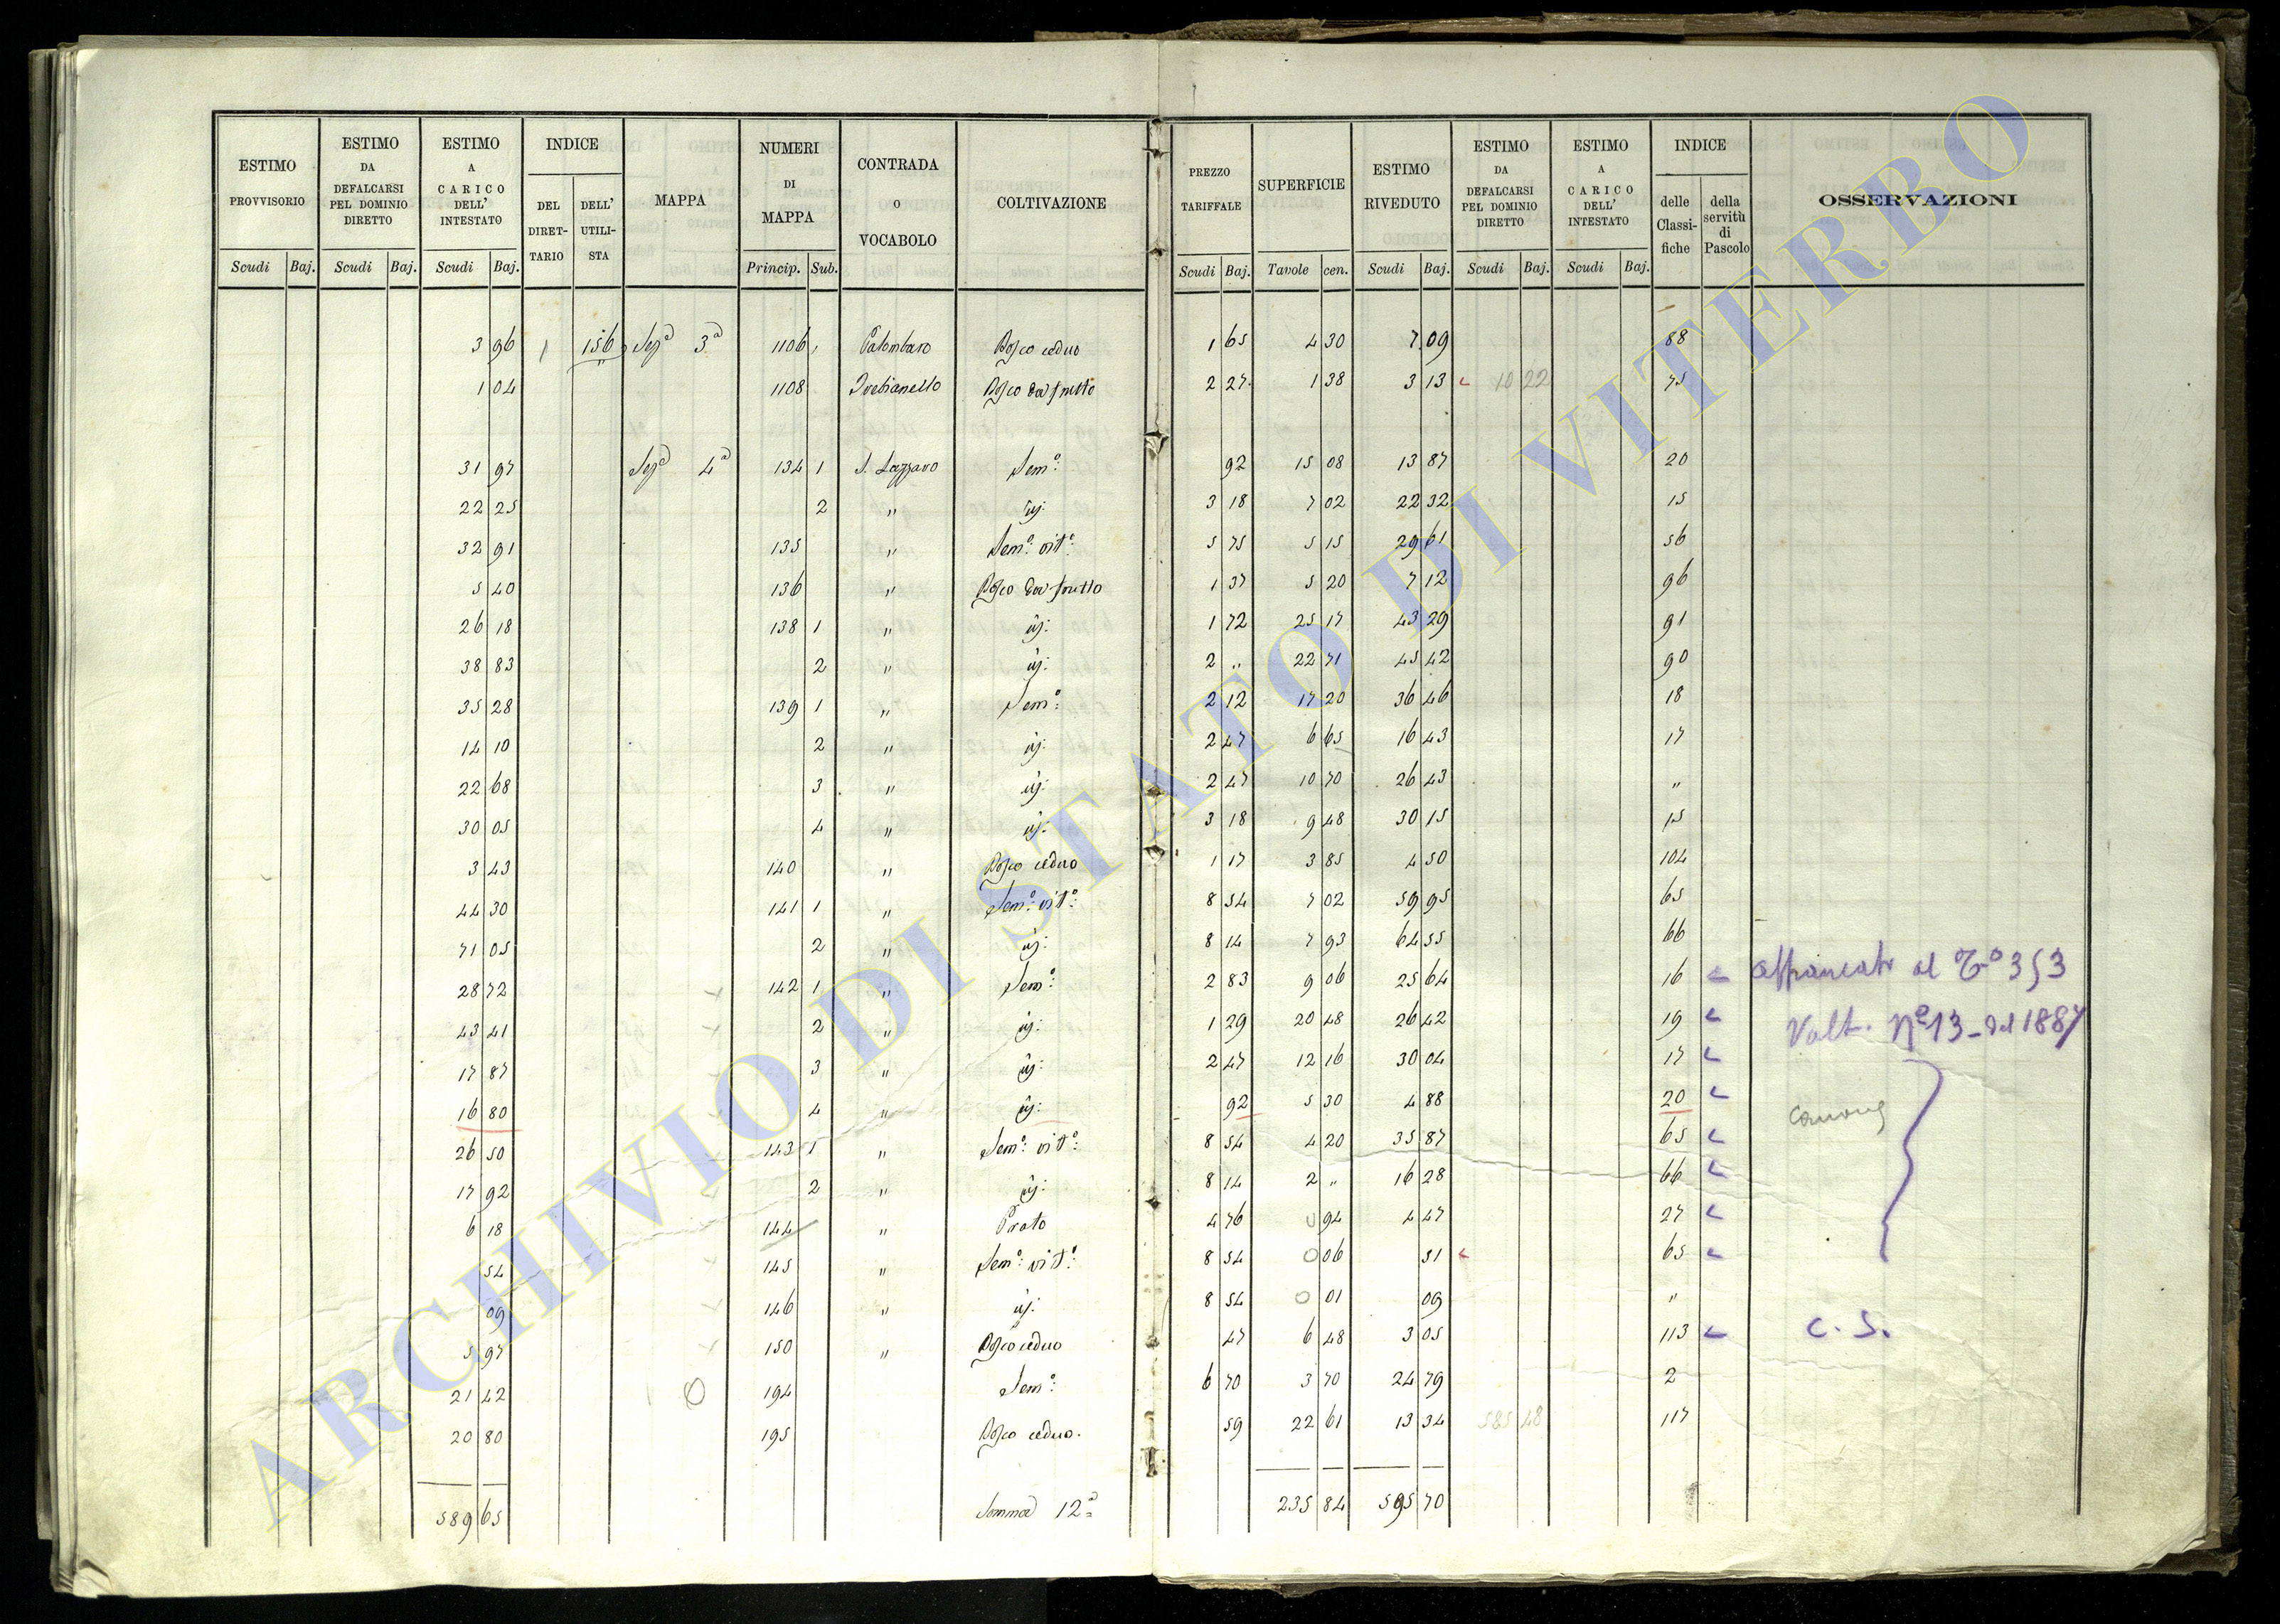 ESTIMO PROVVISORIO | ESTIMO DA DEFALCARSI PEL DOMINIO DIRETTO | ESTIMO A CARICO DELL' INTESTATO | INDICE DEL DIRETTARIO | DELL' UTILISTA | MAPPA | NUMERI DI MAPPA | CONTRADA O VOCABOLO | COLTIVAZIONE | PREZZO TARIFFALE | SUPERFICIE | ESTIMO RIVEDUTO | ESTIMO DA DEFALCARSI PEL DOMINIO DIRETTO | ESTIMO A CARICO DELL' INTESTATO | INDICE delle Classifiche | della servitù di Pascolo | OSSERVAZIONI
Scudi Baj. | Scudi Baj. | Scudi Baj. | Princip. Sub. | Scudi Baj. | Tavole cen. | Scudi Baj. | Scudi Baj. | Scudi Baj.
3 96 | 156 | Sez.a 3a | 1106 | Palombaro | Bosco ceduo | 1 65 | 4 30 | 7 09 | 88
1 04 | 1108 | Bosco da frutto | 2 27 | 1 38 | 3 13 | 10 22 | 75
31 97 | Sez.a 4a | 134 1 | S. Lazzaro | Sem.o | 92 | 15 08 | 13 87 | 20
22 25 | 2 | " | id: | 3 18 | 7 02 | 22 32 | 15
32 91 | 135 | " | Sem.o vit.o | 5 75 | 5 15 | 29 61 | 56
5 40 | 136 | " | Bosco da frutto | 1 37 | 5 20 | 7 12 | 96
26 18 | 138 1 | " | id: | 1 72 | 25 17 | 43 29 | 91
38 83 | 2 | " | id: | 2 " | 22 71 | 45 42 | 90
35 28 | 139 1 | " | Sem.o | 2 12 | 17 20 | 36 46 | 18
14 10 | 2 | " | id: | 2 47 | 6 65 | 16 43 | 17
22 68 | 3 | " | id: | 2 47 | 10 70 | 26 43 | "
30 05 | 4 | " | id: | 3 18 | 9 48 | 30 15 | 15
3 43 | 140 | " | Bosco ceduo | 1 17 | 3 85 | 4 50 | 104
44 30 | 141 1 | " | Sem.o vit.o | 8 54 | 7 02 | 59 95 | 65
71 05 | 2 | " | id: | 8 14 | 7 93 | 64 55 | 66
28 72 | 142 1 | " | Sem.o | 2 83 | 9 06 | 25 64 | 16 | affrancato al T.o 353
43 41 | 2 | " | id: | 1 29 | 20 48 | 26 42 | 19 | Volt. No 13 - del 1887
17 87 | 3 | " | id: | 2 47 | 12 16 | 30 04 | 17
16 80 | 4 | " | id: | 92 | 5 30 | 4 88 | 20 | canone
26 50 | 143 1 | " | Sem.o vit.o | 8 54 | 4 20 | 35 87 | 65
17 92 | 2 | " | id: | 8 14 | 2 " | 16 28 | 66
6 18 | 144 | " | Prato | 4 76 | 0 94 | 4 47 | 27
54 | 145 | " | Sem.o vit.o | 8 54 | 0 06 | 51 | 65
09 | 146 | " | id: | 8 54 | 0 01 | 09 | "
5 97 | 150 | " | Bosco ceduo | 47 | 6 48 | 3 05 | 113 | C. S.
21 42 | 0 | 194 | Sem.o | 6 70 | 3 70 | 24 79 | 2
20 80 | 195 | Bosco ceduo. | 59 | 22 61 | 13 34 | 585 48 | 117
589 65 | Somma 12a | 235 84 | 595 70
ARCHIVIO DI STATO DI VITERBO